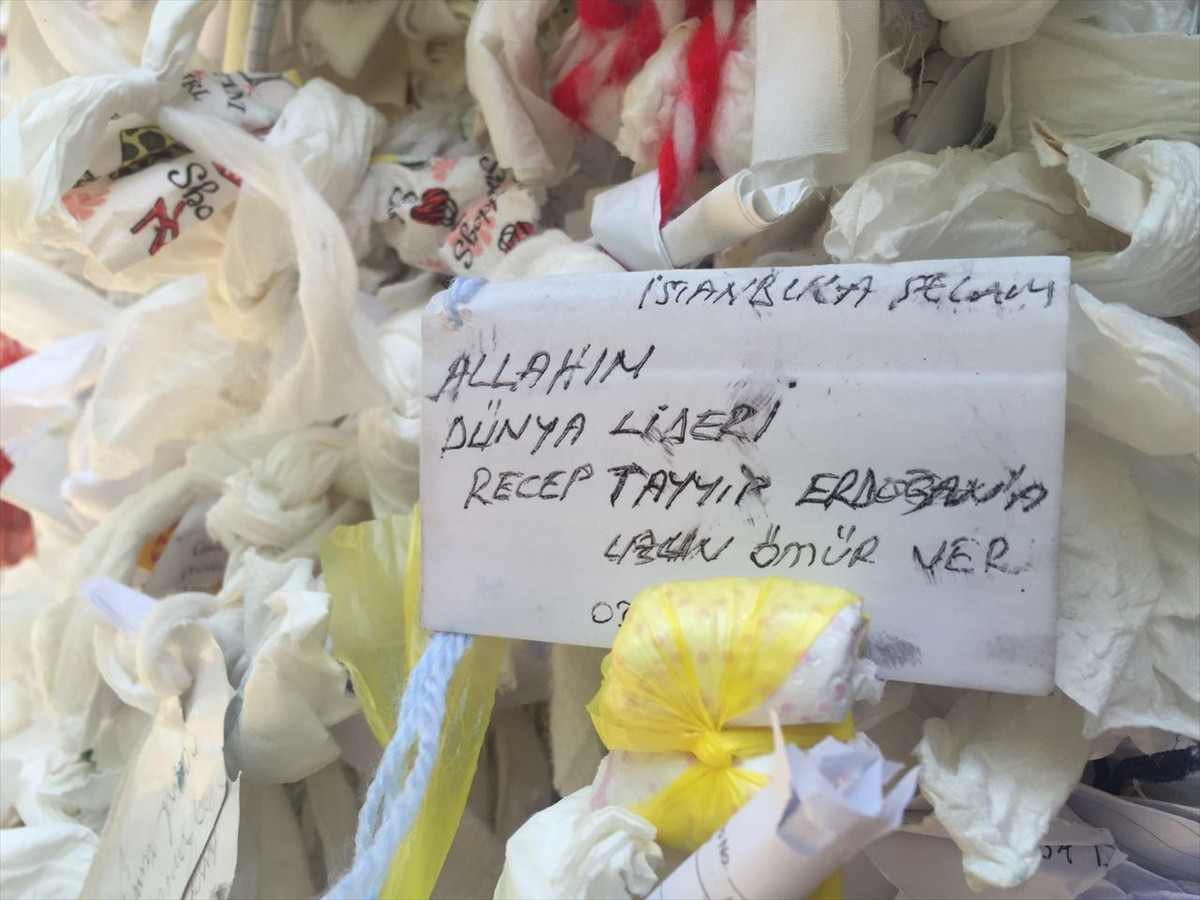 İSTANBUL'A SELAM
ALLAH'IM
DÜNYA LİDERİ
RECEP TAYYİP ERDOĞAN'A
UZUN ÖMÜR VER
03